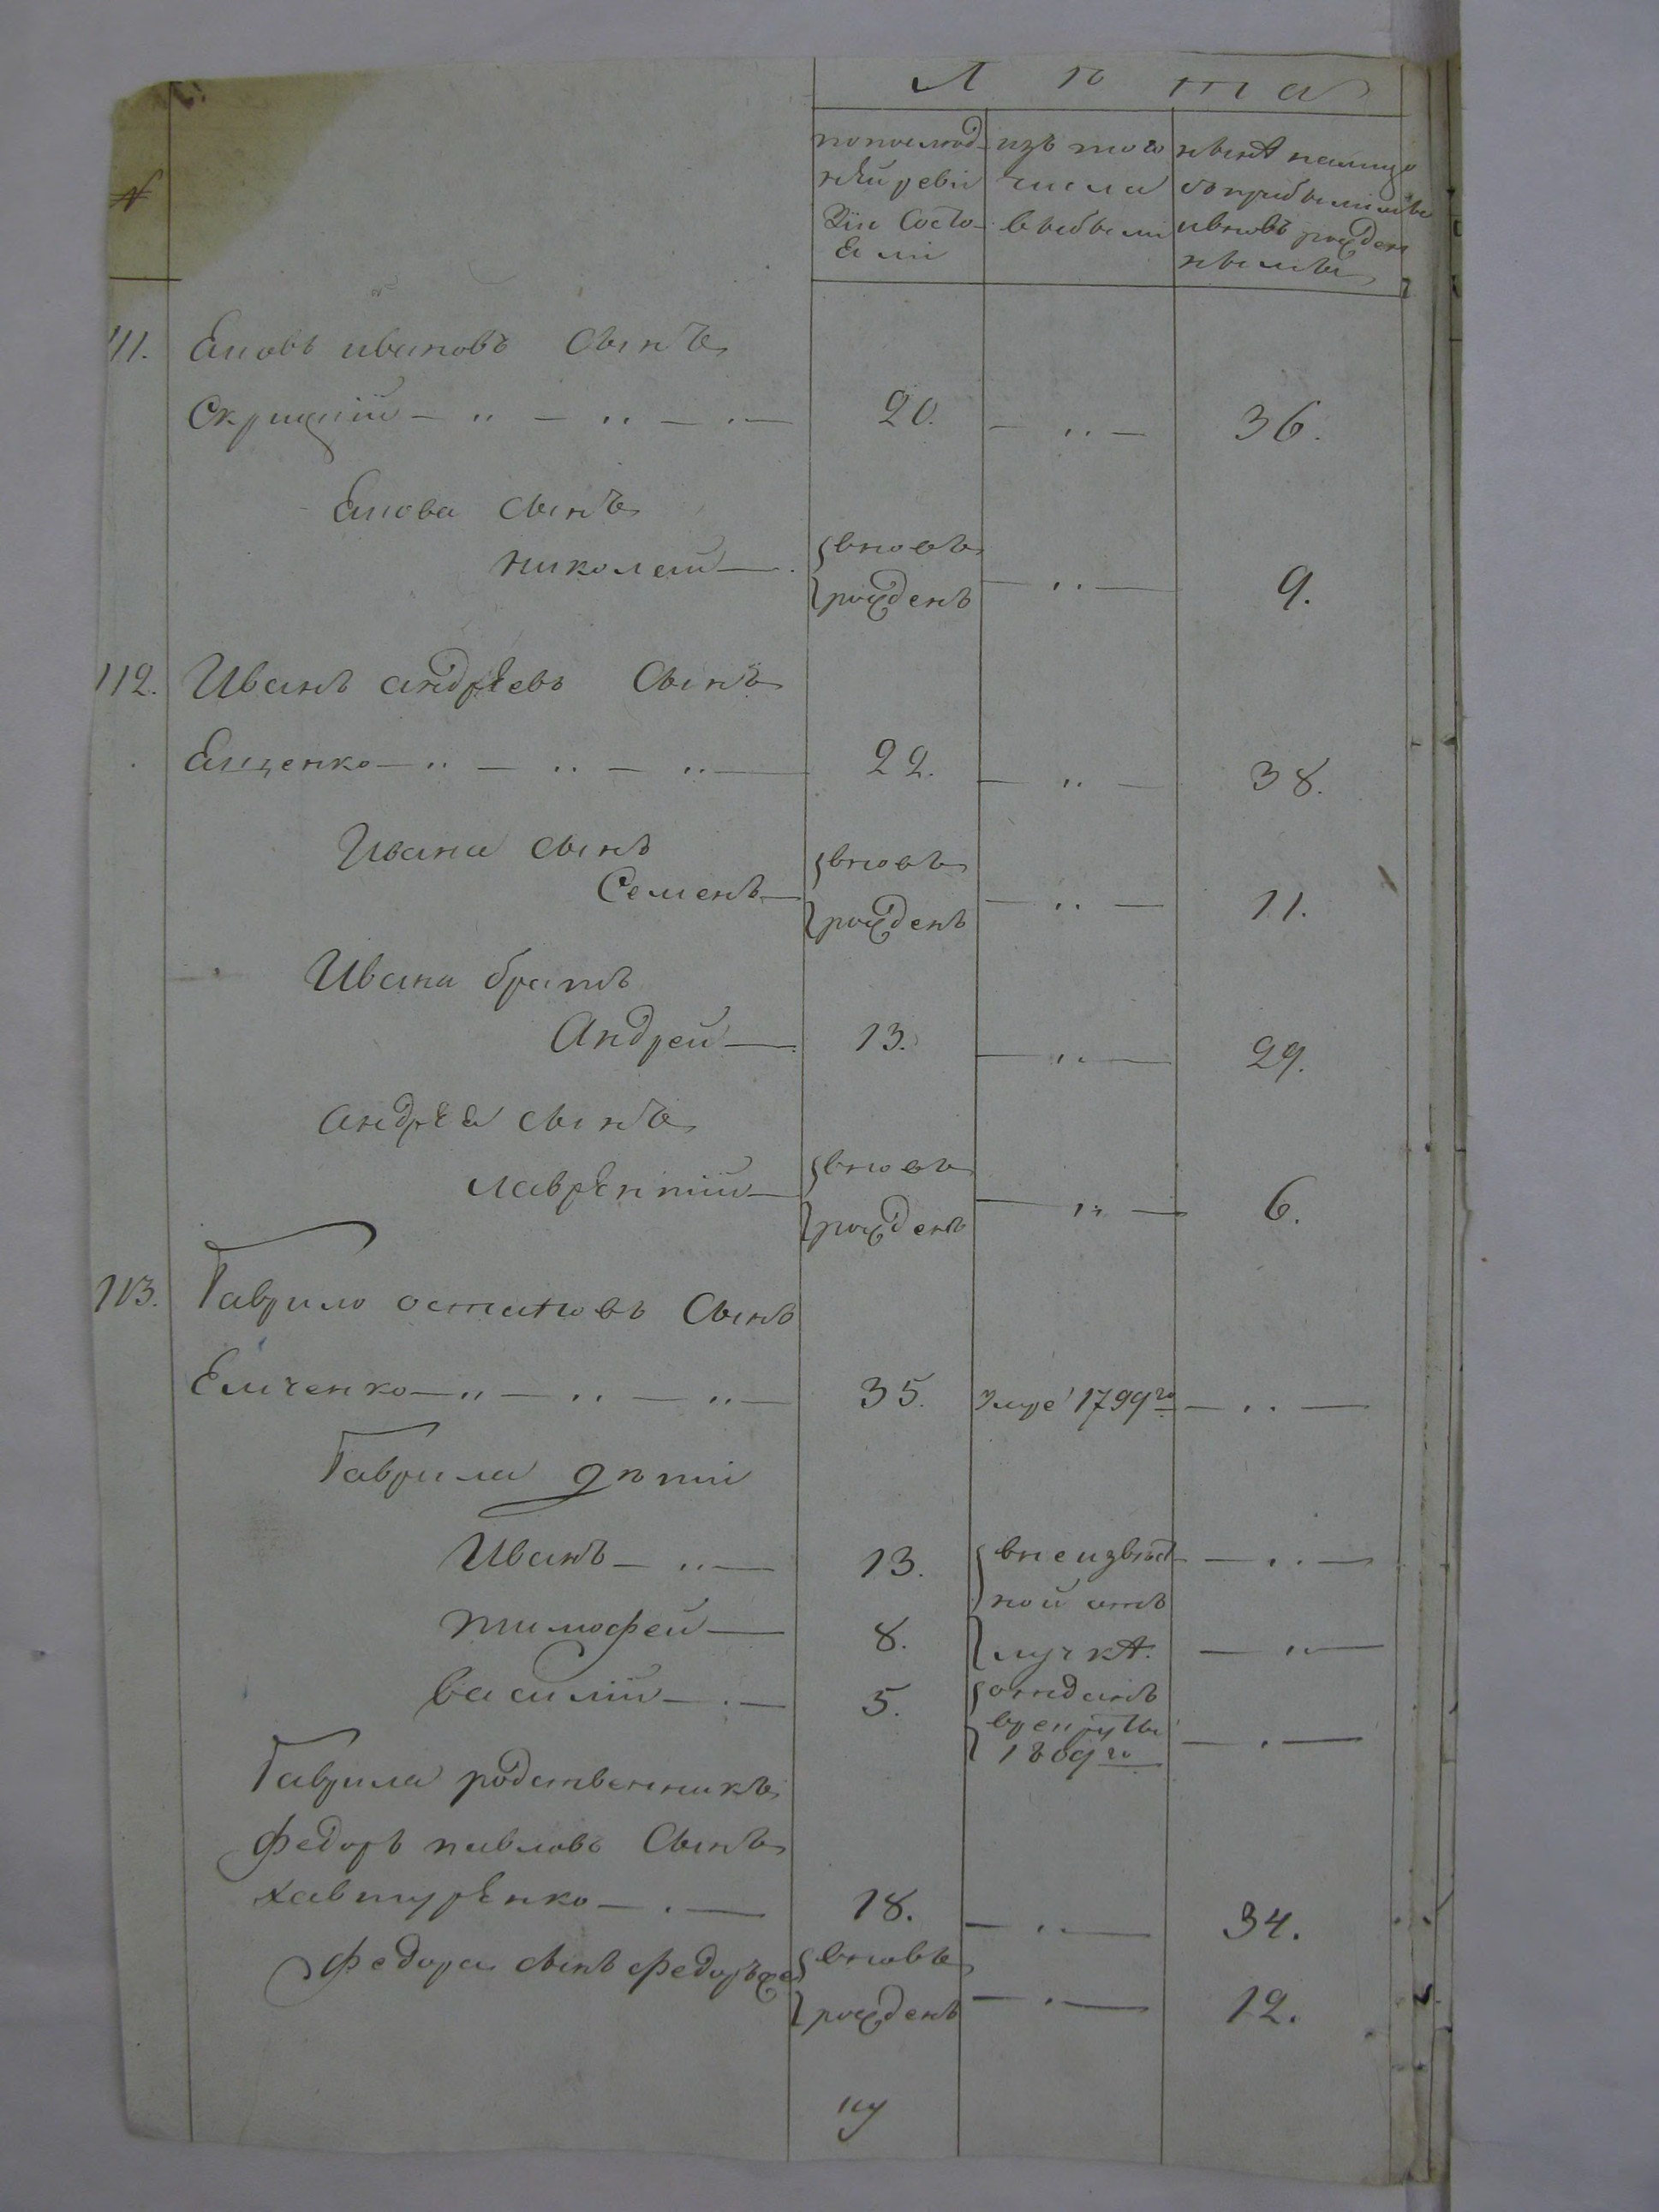 Лѣта
№
по послѣд-
нѣй реви
зїи состо-
яли
изъ того
числа
выбыли
нынѣ налицо
съ прибылыми
и вновь рожден
ными
111. Яковъ ивановъ сынъ
Скрицкїй — „ — „ — „ — 20. — „ — 36.
Якова сынъ
николай — вновь рожденъ — „ — 9.
112. Иванъ андрѣевъ сынъ
Ященко — „ — „ — „ — 22. — „ — 38.
Ивана сынъ
Семенъ — вновь рожденъ — „ — 11.
Ивана братъ
Андрей — 13. — „ — 29.
андрѣя сынъ
лаврѣнтїй — вновь рожденъ — „ — 6.
113. Гаврило остаповъ сынъ
Емченко — „ — „ — „ — 35. умре 1799го — „ —
Гаврила дѣти
Иванъ — „ — 13. в неизвѣст- — „ —
ной отъ
тимофей — 8. лучкѣ. — „ —
василїй — „ — 5. отданъ
врекруты — „ —
1809го
Гаврила родственникъ
Федоръ павловъ сынъ
хавтурѣнко — „ — 18. — „ — 34.
Федора сынъ федоръже вновь
рожденъ — „ — 12.